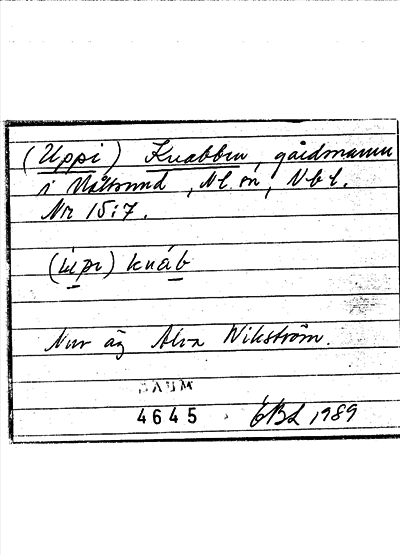 (Uppi) Knabben, gårdsnamn
i Nältrund, Nl. sn, Vbl.
Nr 15:7.
(ùpi) knáb
Nuv äg Alva Wikström.
DAUM
4645 EBL 1989